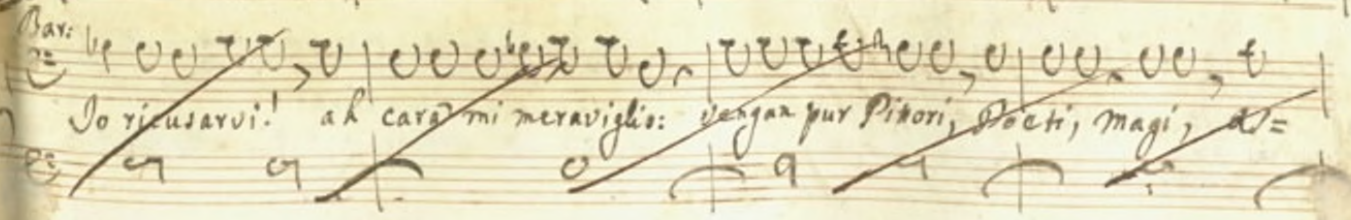 Bar:
Io ricusarvi! ah cara mi meraviglio: vengan pur Pittori, Poeti, Magi, As=